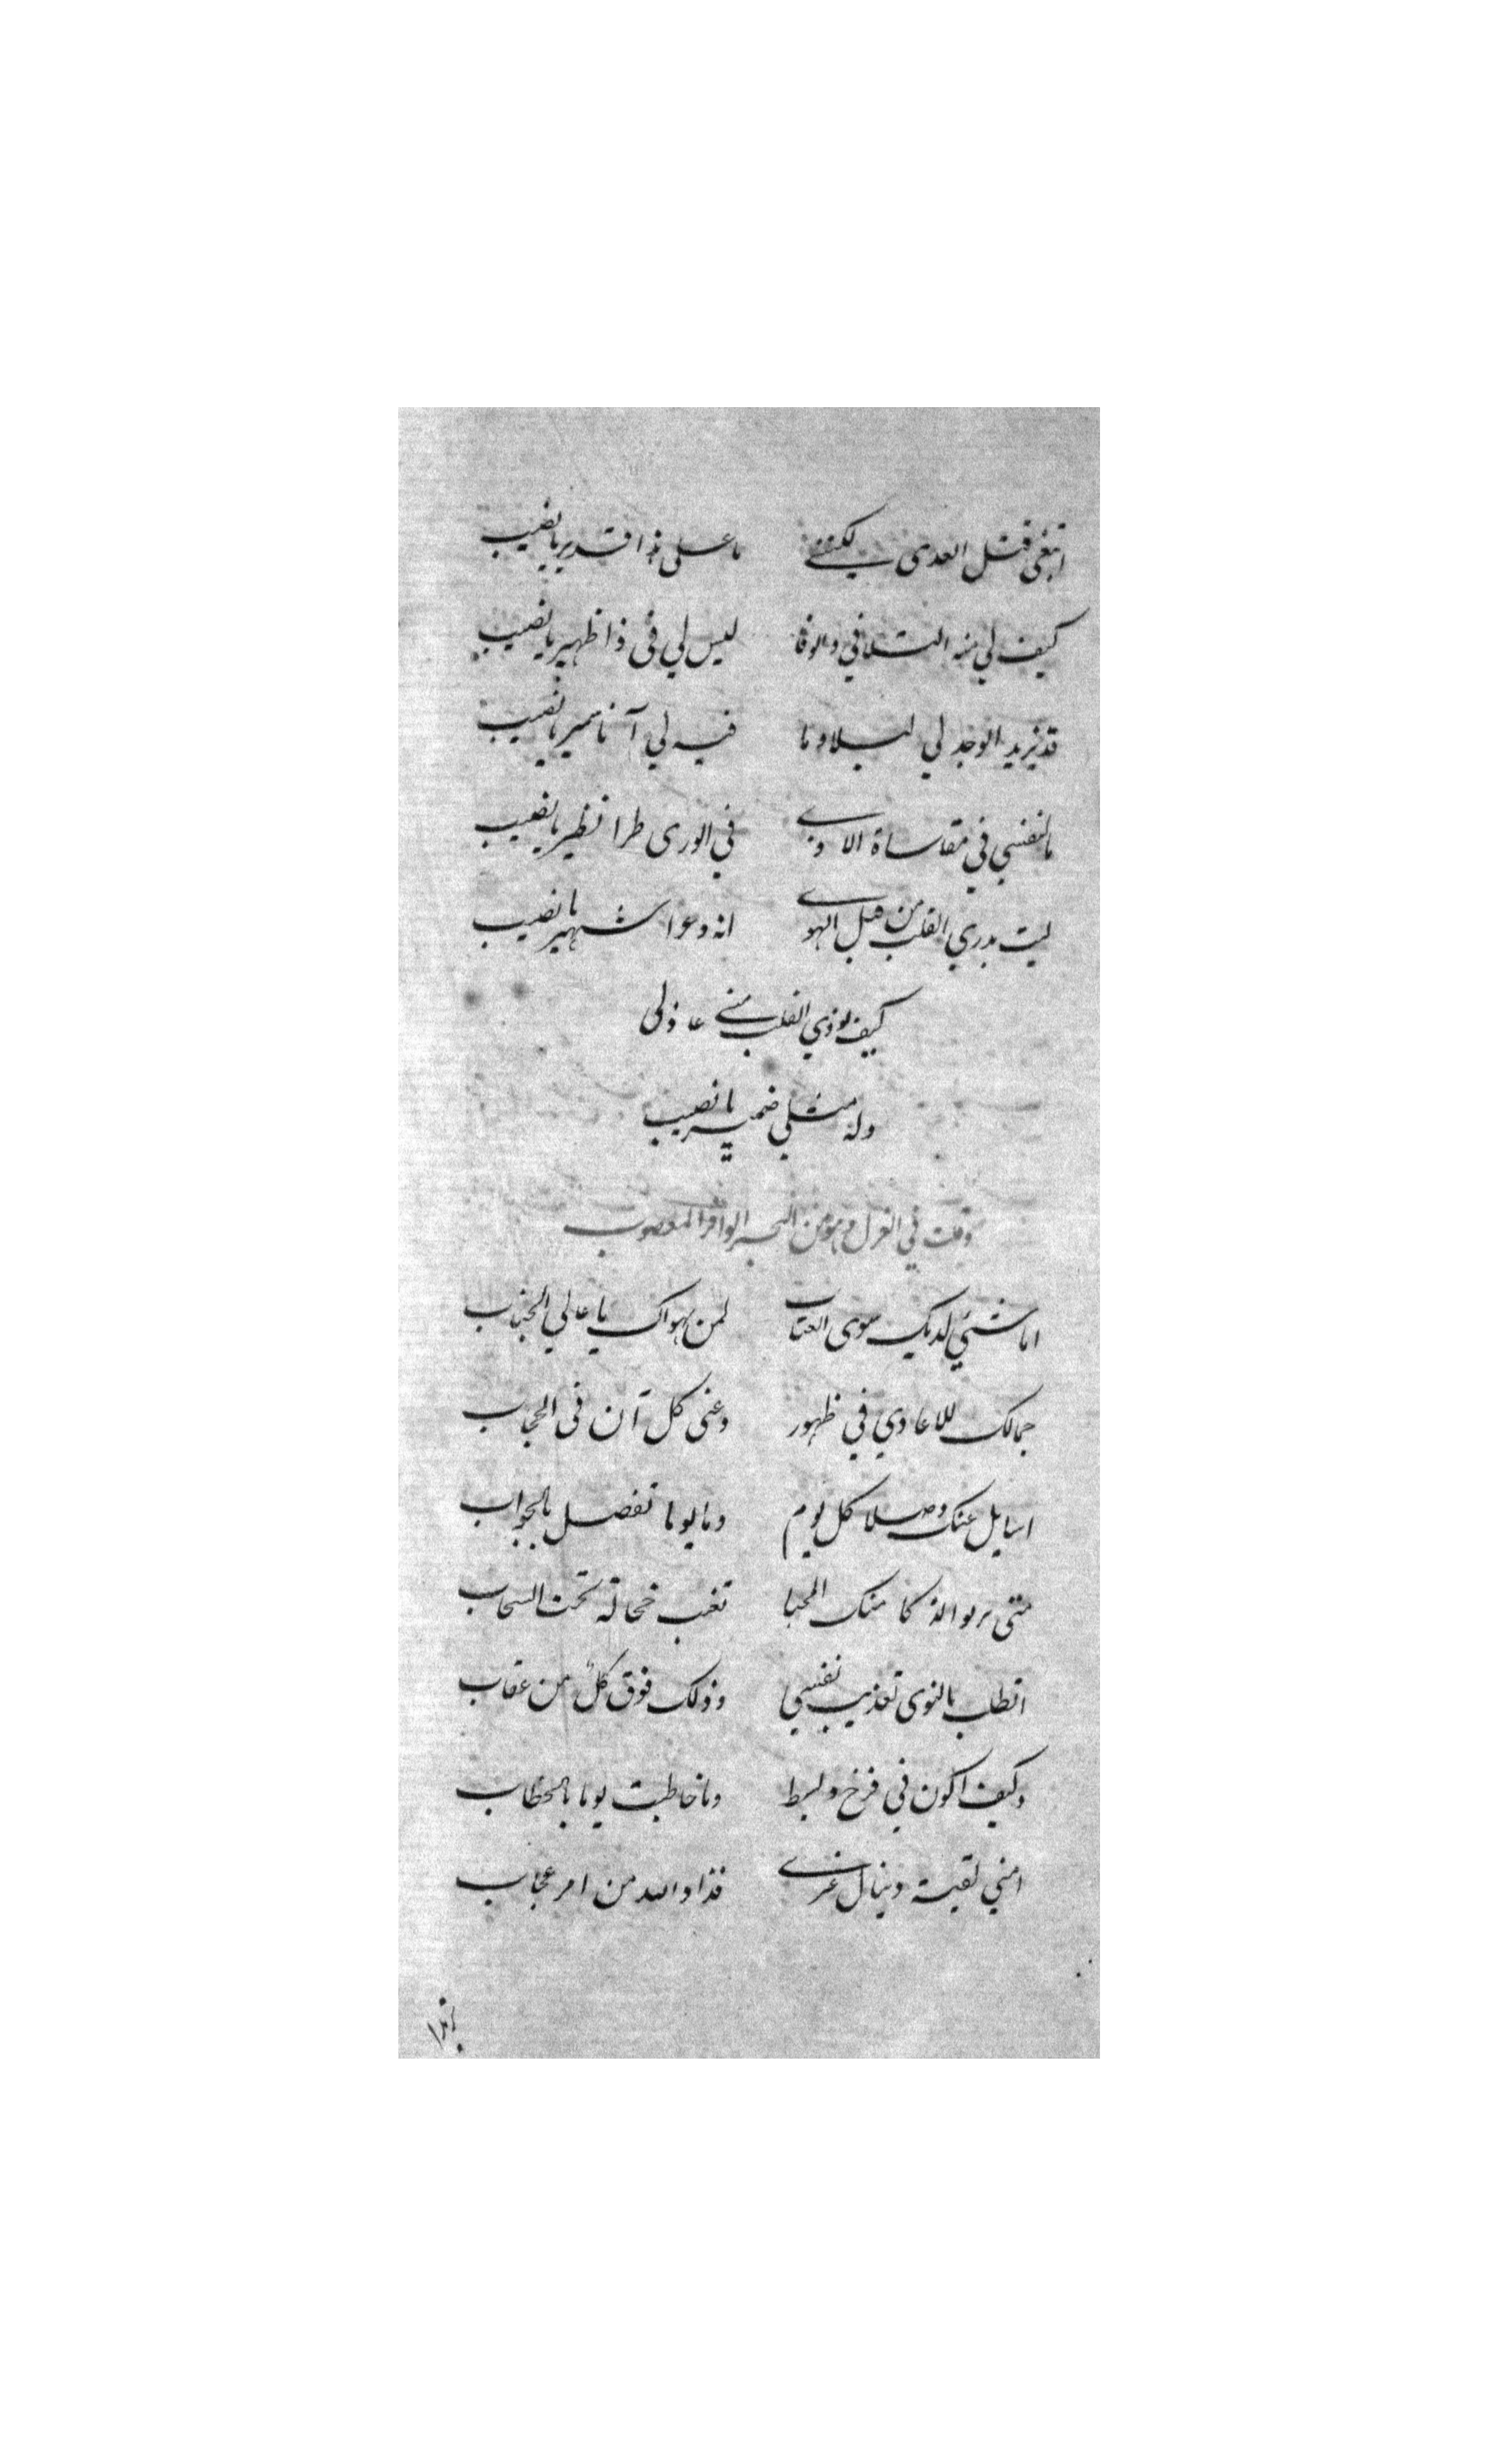 ابتغى قتل العدى لكنني ما على ذا قدير يا نصيب
كيف لي منه التلافي والوفا ليس لي في ذا ظهير يا نصيب
قد يزيد الوجد لي ليلا وما فيه لي آنا سمير يا نصيب
ما لنفسي في مقاساة الاذى في الورى طرا نظير يا نصيب
ليت يدري القلب من قبل الهوى انه دعوا شهير يا نصيب
كيف يؤذي القلب مني عاذلى
وله مثلي ضمير يا نصيب
وقلت في الغزل وهو من البحر الوافر المعصوب
اما شيئ لديك سوى العتاب لمن يهواك يا عالي الجناب
جمالك للاعادي في ظهور وعنى كل آن فى الحجاب
اسايل عنك وصلا كل يوم وما يوما تفضل بالجواب
متى يربو ذكا منك المحيا تغب خجالة تحت السحاب
اتطلب بالنوى تعذيب نفسي وذلك فوق كل من عقاب
وكيف اكون في فرح وبسط وما خاطبت يوما بالخطاب
امني لقية وينال غيرى فذا والله من امر عجاب